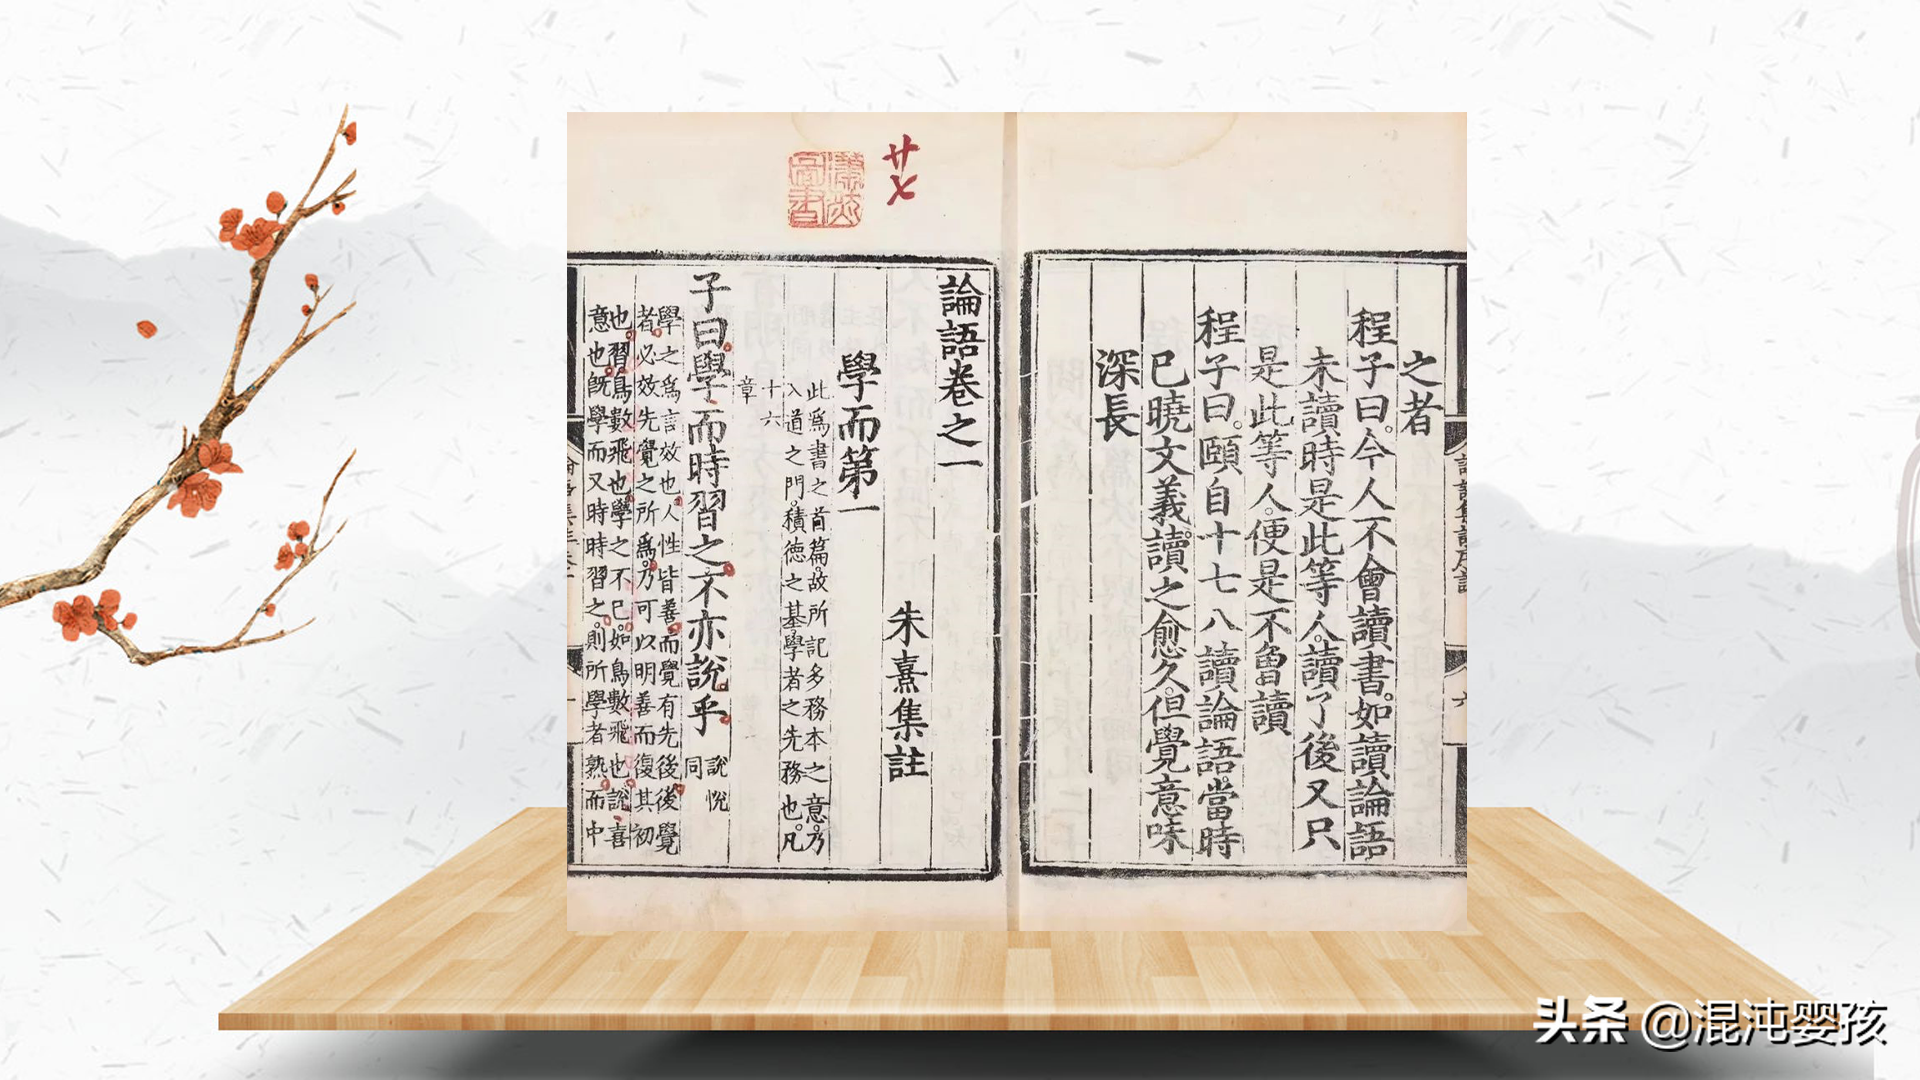 之者
程子曰今人不會讀書如讀論語
未讀時是此等人讀了後又只
是此等人便是不曾讀
程子曰頤自十七八讀論語當時
已曉文義讀之愈久但覺意味
深長
廿七
論語卷之一
朱熹集註
學而第一
此為書之首篇故所記多務本之意乃
入道之門積德之基學者之先務也凡
十六
章
子曰學而時習之不亦說乎
說悅
同
學之為言效也人性皆善而覺有先後後覺
者必效先覺之所為乃可以明善而復其初
也習鳥數飛也學之不已如鳥數飛也說喜
意也旣學而又時時習之則所學者熟而中
头条 @混沌婴孩